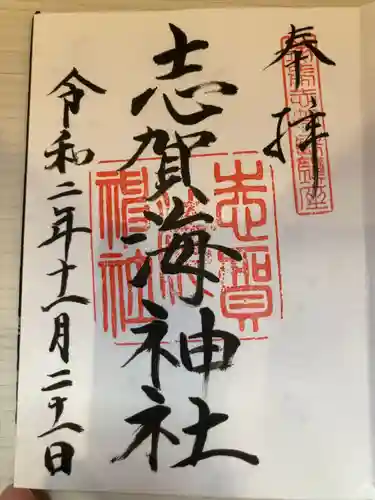 奉拝
志賀海神社
令和二年十一月二十一日
志賀海神社